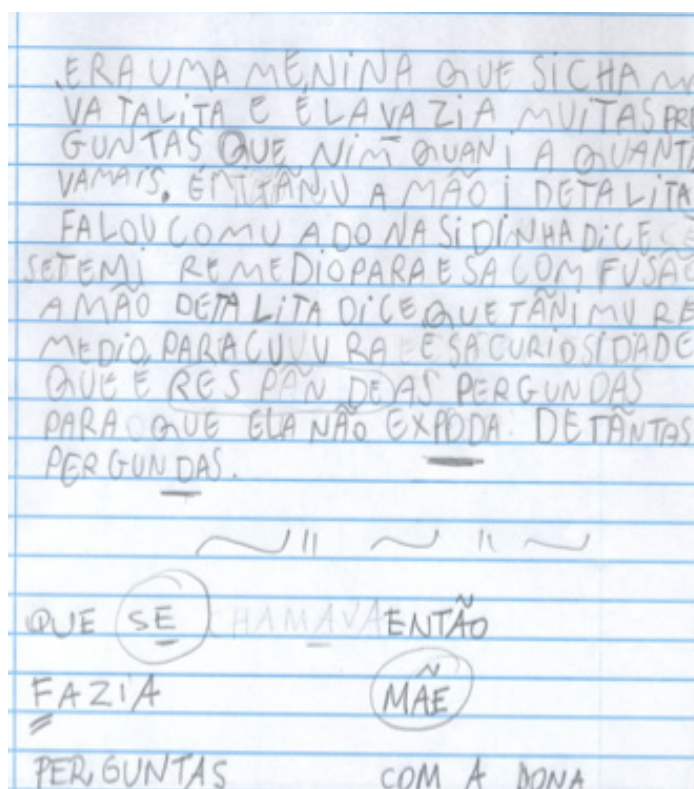 ERA UMA MENINA QUE SICHAMA
VA TALITA E ELA VAZIA MUITAS PRE
GUNTAS QUE NIM QUANI A QUANTA
VAMAIS. EMTÃNU A MÃO I DETALITA
FALOU COMU A DO NA SIDINHA DICE
SETEMI REMEDIO PARA ESA COM FUSÃE
A MÃO DETALITA DICE QUE TÃNIMU RE
MEDIO, PARA CUVU RA ESA CURIOSIDADE
QUE É RES PÃN DE AS PERGUNDAS
PARA QUE ELA NÃO EXPODA DE TÃNTAS
PERGUNDAS.
QUE SE CHAMAVA ENTÃO
FAZIA MÃE
PERGUNTAS COM A DONA